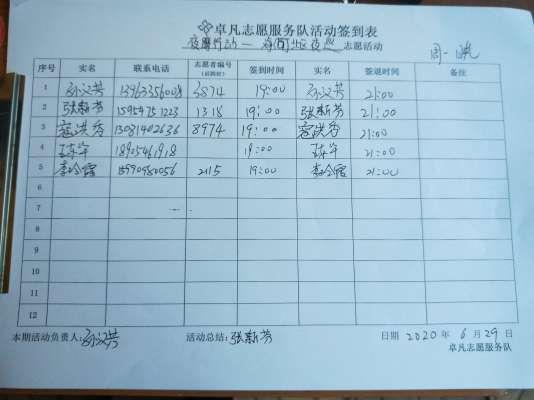 卓凡志愿服务队活动签到表
夜 行动一 夜 志愿活动 周一晚
序号 实名 联系电话 志愿者编号（后四位） 签到时间 实名 签退时间 备注
1 孙义芳 3874 19:00 孙义芳 21:00
2 张新芳 15954751223 1318 19:00 张新芳 21:00
3 洪秀 13081402636 8974 19:00 洪秀 21:00
4 19:00 21:00
5 李 15990980056 2115 19:00 李 21:00
6
7
8
9
10
11
12
本期活动负责人:孙义芳 活动总结:张新芳 日期 2020 年 6 月 29 日
卓凡志愿服务队